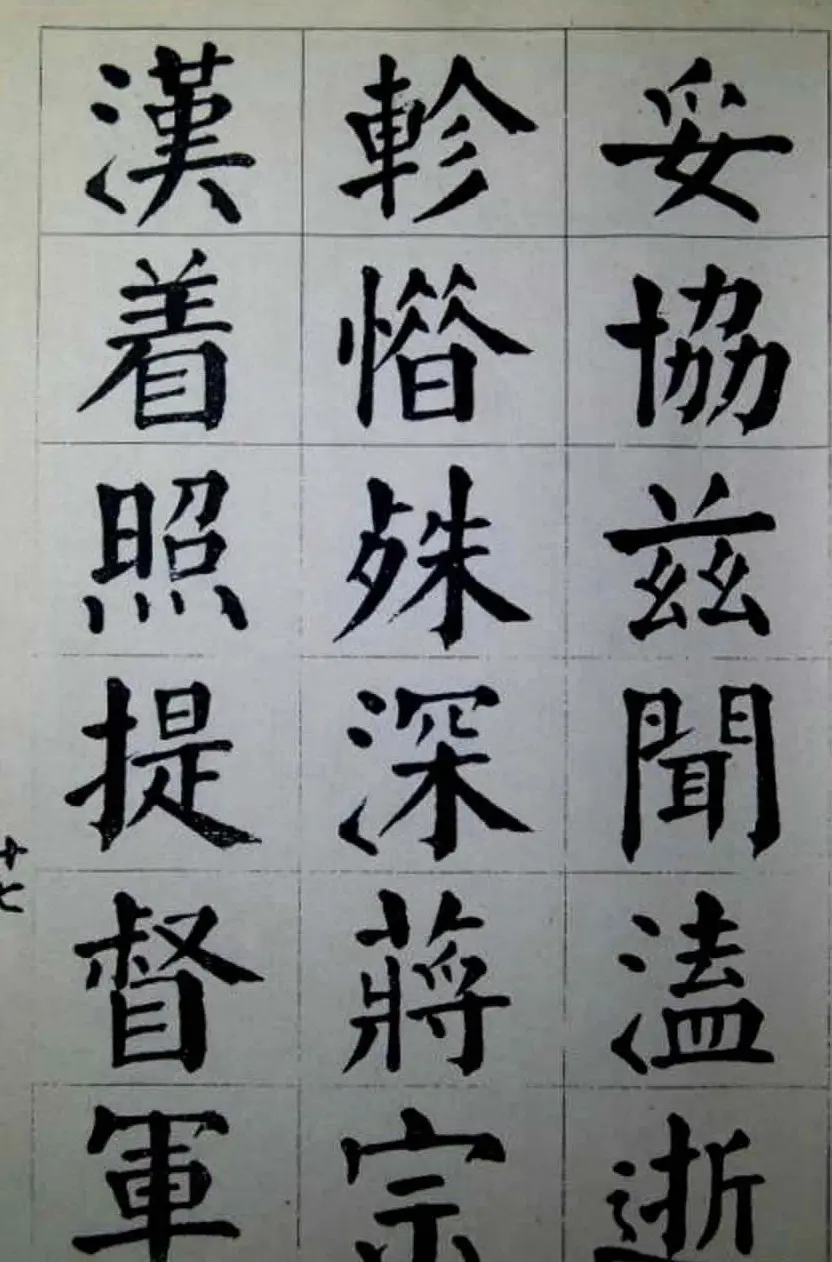 妥協兹聞溘逝
軫惜殊深蔣宗
漢着照提督軍
十七